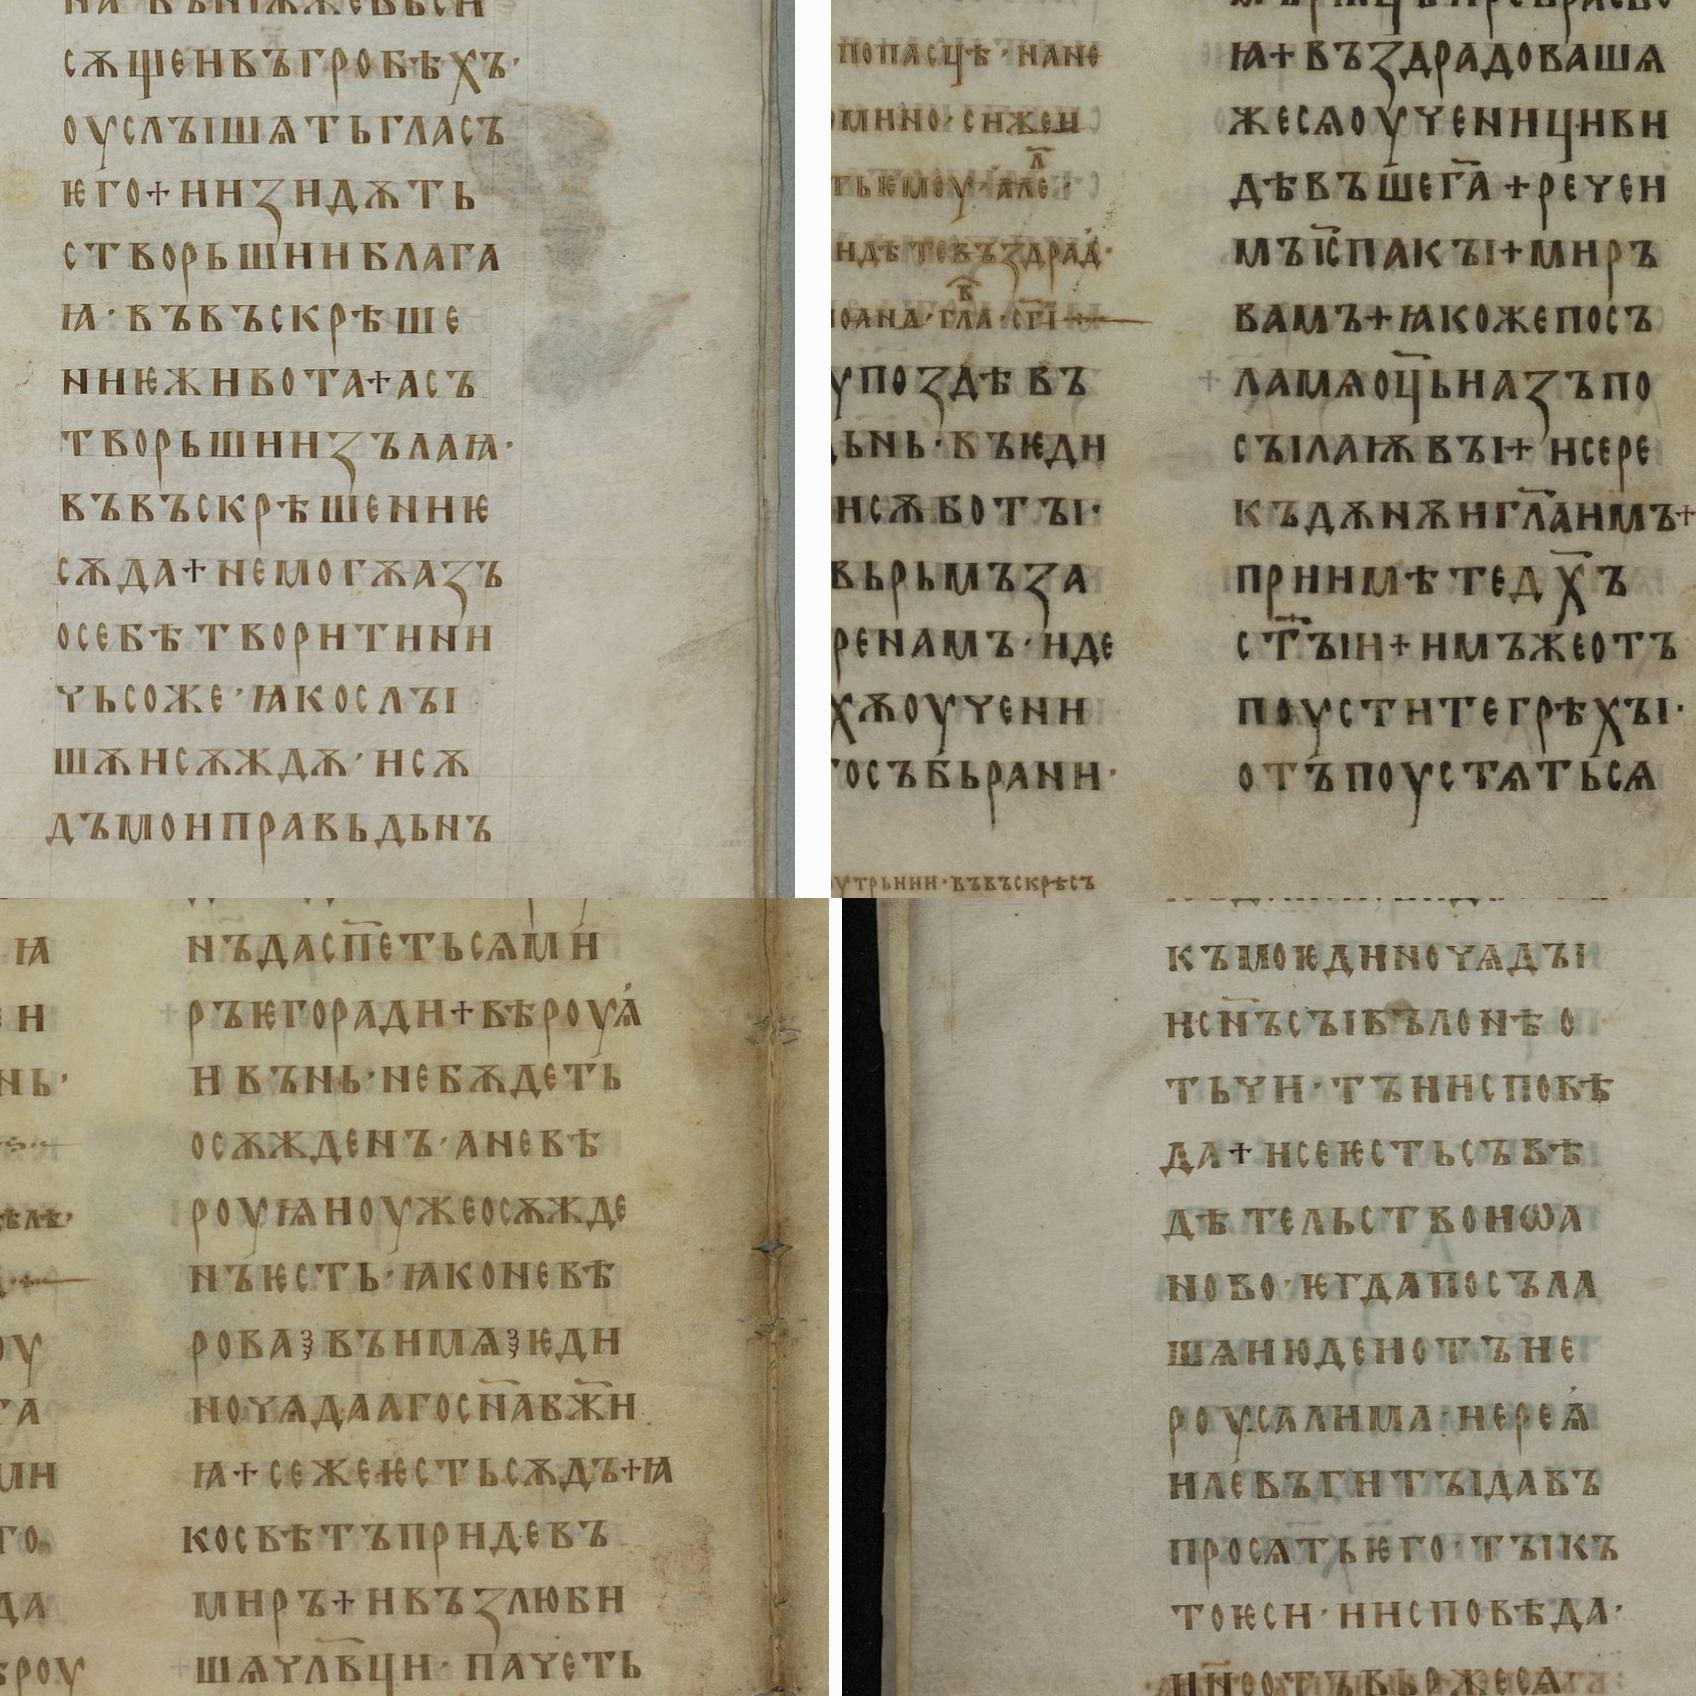 сѫщеивъгробѣхъ·
оуслꙑшѧтьгласъ
ѥго+ииꙁидѫть
створьшиибл҃ага
ꙗ·въвъскрѣше
ниѥживота+асъ
творьшииꙁълаꙗ·
въвъскрѣшениѥ
сѫда+немогѫаꙁъ
осебѣтворитини
чьсоже·ꙗкослꙑ
шѫисѫждѫ·исѫ
дъмоиправьдьнъ
попасцѣ·нане
ндѣтевъꙁдрад·
оана·гла·
упоꙁдѣвъ
ьнь·въѥди
исѫботꙑ·
вьрьмъꙁа
ренамъ·иде
хѫоучени
осъбьрани·
утрьнии·въвъскрѣсъ
ꙗ+въꙁдрадовашѧ
жесѧоученициви
дѣвъшег҃а+речеи
мъі҃спакꙑ+миръ
вамъ+ꙗкожепосъ
ламѧоц҃ьиаꙁъпо
сꙑлаѭвꙑ+исере
къдѫнѫигл҃аимъ+
приимѣтедх҃ъ
ст҃ꙑи+имъжеотъ
поуститегрѣхꙑ·
отъпоустѧтьсѧ
нъдасп҃етьсѧми
ръѥгоради+вѣроуѧ
ивънь·небѫдеть
осѫжденъ·аневѣ
роуꙗиоужеосѫжде
нъѥсть·ꙗконевѣ
рова⁏вънмѧ⁏ѥди
ночѧдаагосн҃абж҃и
ꙗ+сежеѥстьсѫдъ+ꙗ
косвѣтъпридевъ
миръ+ивъꙁлюби
шѧчл҃вци·пачеть
къмоѥдиночѧдꙑ
исн҃ъсꙑвълонѣо
тьчи·тъиисповѣ
да+исеѥстьсъвѣ
дѣтельствоиѡа
ново·ѥгдапосъла
шѧиюдеиотъиѥ
роусалима·иереѧ
илевъгитꙑдавъ
просѧтьѥго·тꙑкъ
тоѥси·иисповѣда·